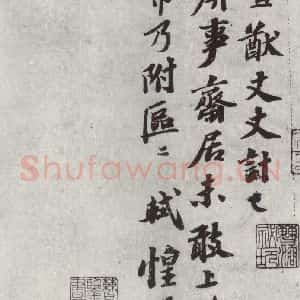 猷丈丈計
事齋居未敢上
乃附區〻軾惶
Shufawang.CN